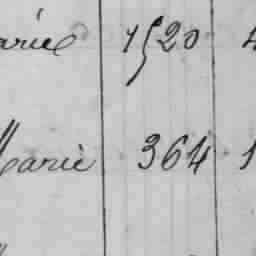 arie 1520 4
Marie 364 1